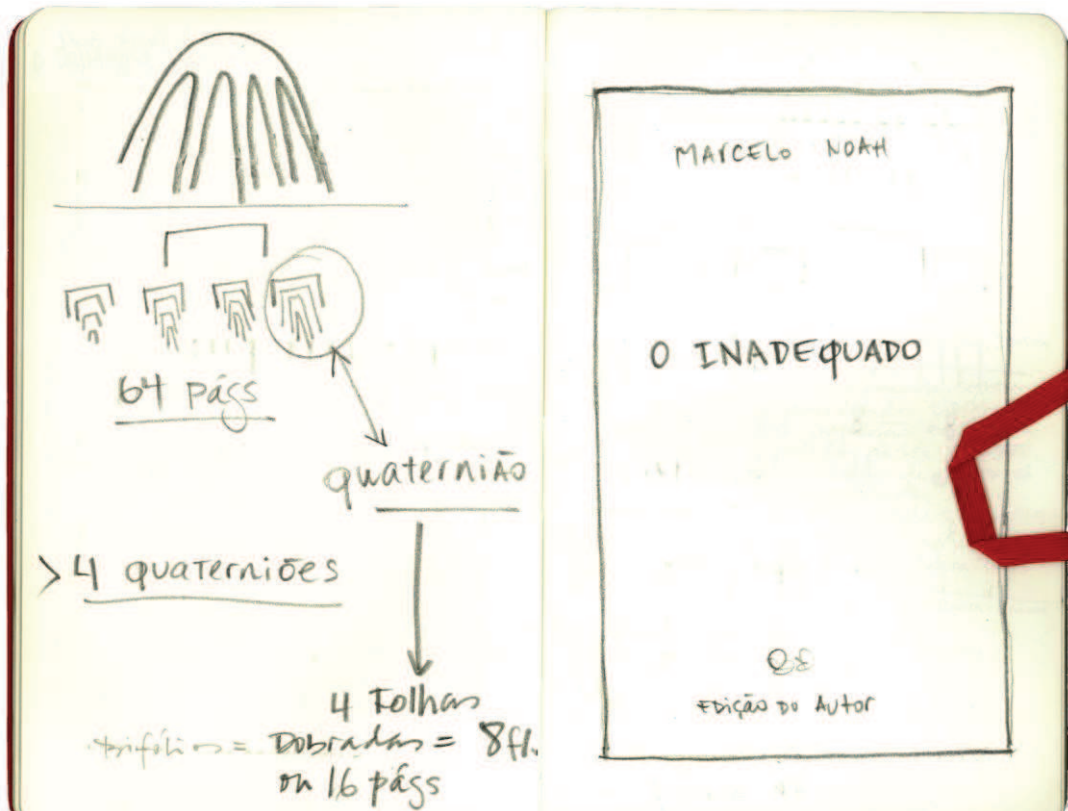 64 págs
quaternião
> 4 quaterniões
4 Folhas
= Dobradas = 8 fl.
ou 16 págs
MARCELO NOAH
O INADEQUADO
EDIÇÃO DO AUTOR